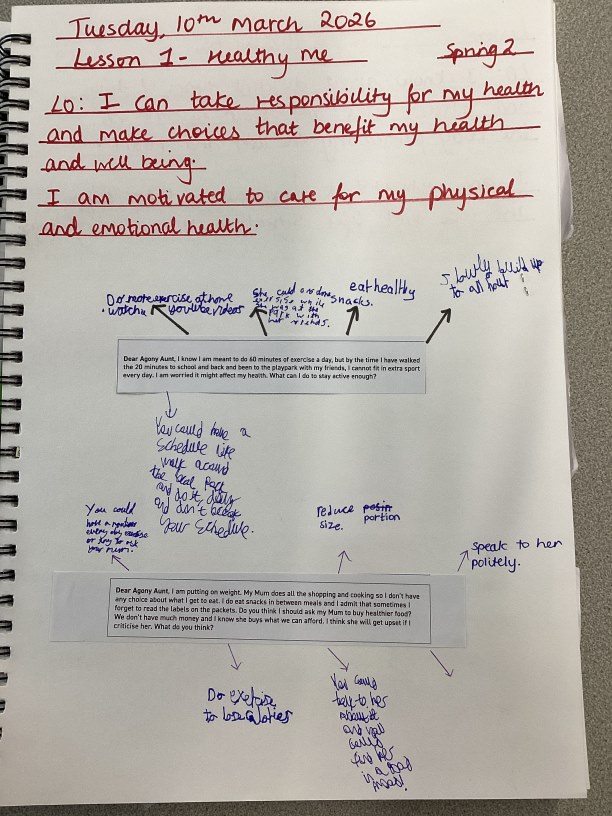 Tuesday, 10th March 2026
Lesson 1 - Healthy me Spring 2
LO: I can take responsibility for my health
and make choices that benefit my health
and well being.
I am motivated to care for my physical
and emotional health.
Do more exercise at home
watch youtube videos
She could
exersise while
she was at the
park with
her friends.
eat healthy
snacks.
Slowly build up
to an hour
Dear Agony Aunt, I know I am meant to do 60 minutes of exercise a day, but by the time I have walked
the 20 minutes to school and back and been to the playpark with my friends, I cannot fit in extra sport
every day. I am worried it might affect my health. What can I do to stay active enough?
You could have a
schedule like
walk around
the park
and do it daily
and don't break
your schedule.
You could
have a
every day exercise
or try to ask
your mum.
reduce portion
size.
speak to her
politely.
Dear Agony Aunt, I am putting on weight. My Mum does all the shopping and cooking so I don't have
any choice about what I get to eat. I do eat snacks in between meals and I admit that sometimes I
forget to read the labels on the packets. Do you think I should ask my Mum to buy healthier food?
We don't have much money and I know she buys what we can afford. I think she will get upset if I
criticise her. What do you think?
Do exercise
to lose calories
You could
talk to her
about it
and
find her
in a good
mood.